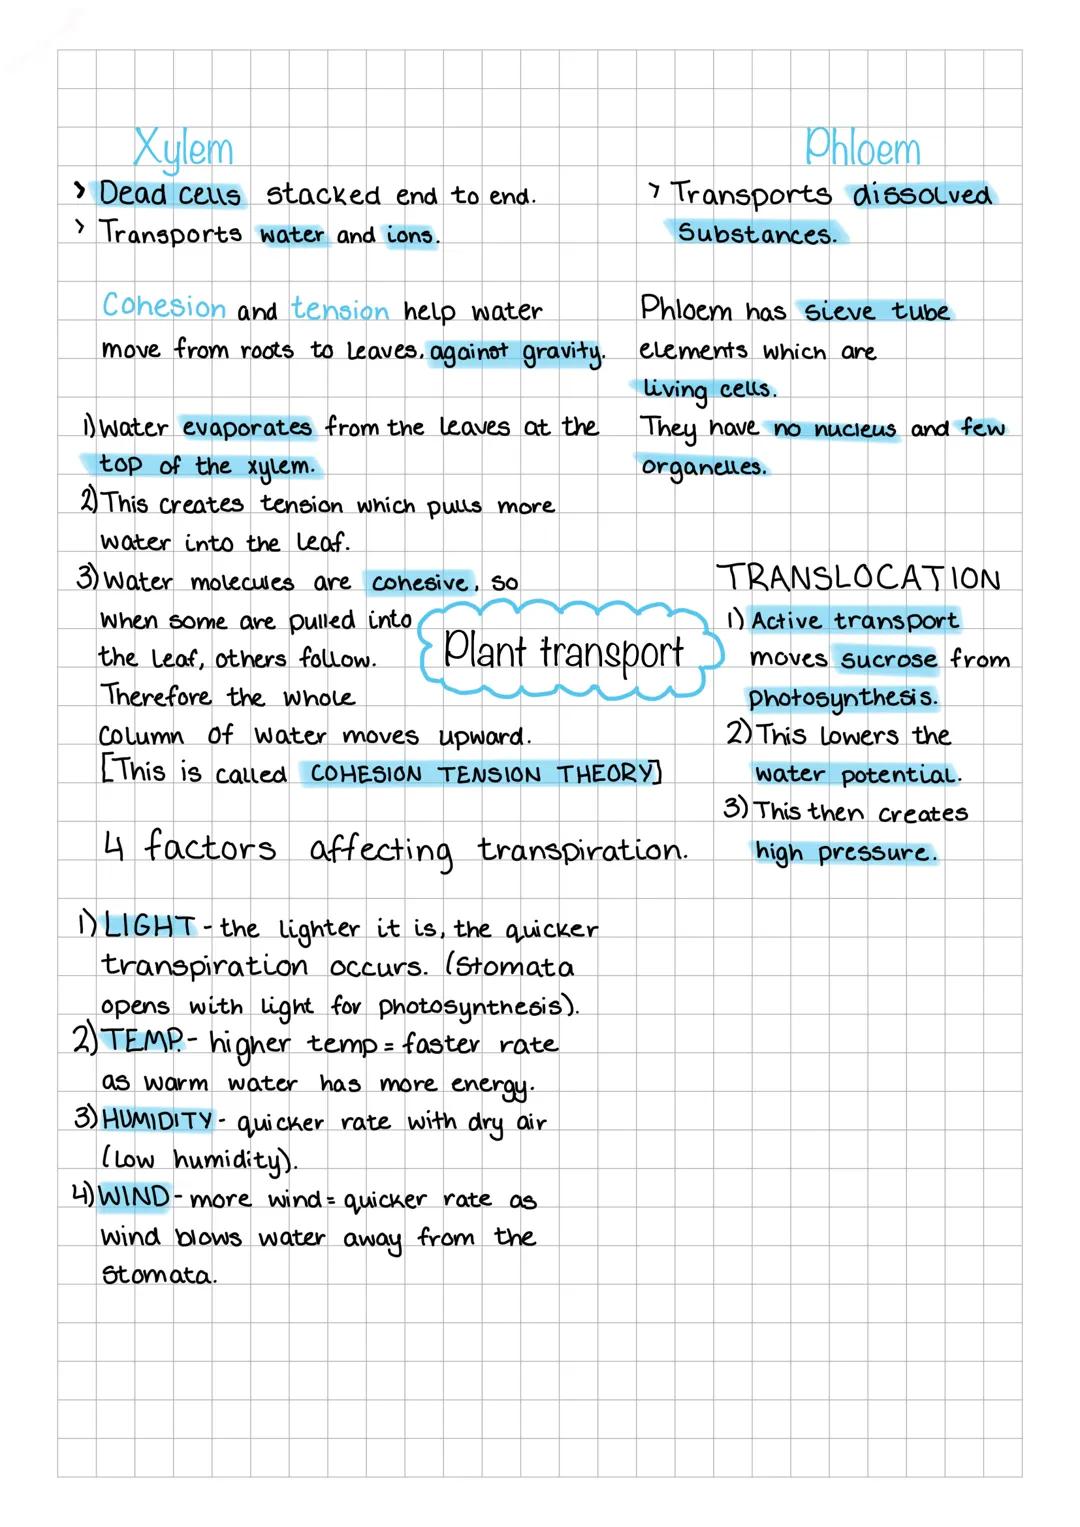 Xylem
> Dead cells stacked end to end.
> Transports water and ions.
Cohesion and tension help water
move from roots to leaves, against gravity.
1) Water evaporates from the leaves at the
top of the xylem.
2) This creates tension which pulls more
water into the leaf.
3) Water molecules are cohesive, so
when some are pulled into
the leaf, others follow.
Therefore the whole
column of water moves upward.
[This is called COHESION TENSION THEORY]
Plant transport
4 factors affecting transpiration.
1) LIGHT - the lighter it is, the quicker
transpiration occurs. (Stomata
opens with light for photosynthesis).
2) TEMP. - higher temp = faster rate
as warm water has more energy.
3) HUMIDITY - quicker rate with dry air
(low humidity).
4) WIND - more wind = quicker rate as
wind blows water away from the
stomata.
Phloem
> Transports dissolved
substances.
Phloem has sieve tube
elements which are
living cells.
They have no nucleus and few
organelles.
TRANSLOCATION
1) Active transport
moves sucrose from
photosynthesis.
2) This lowers the
water potential.
3) This then creates
high pressure.